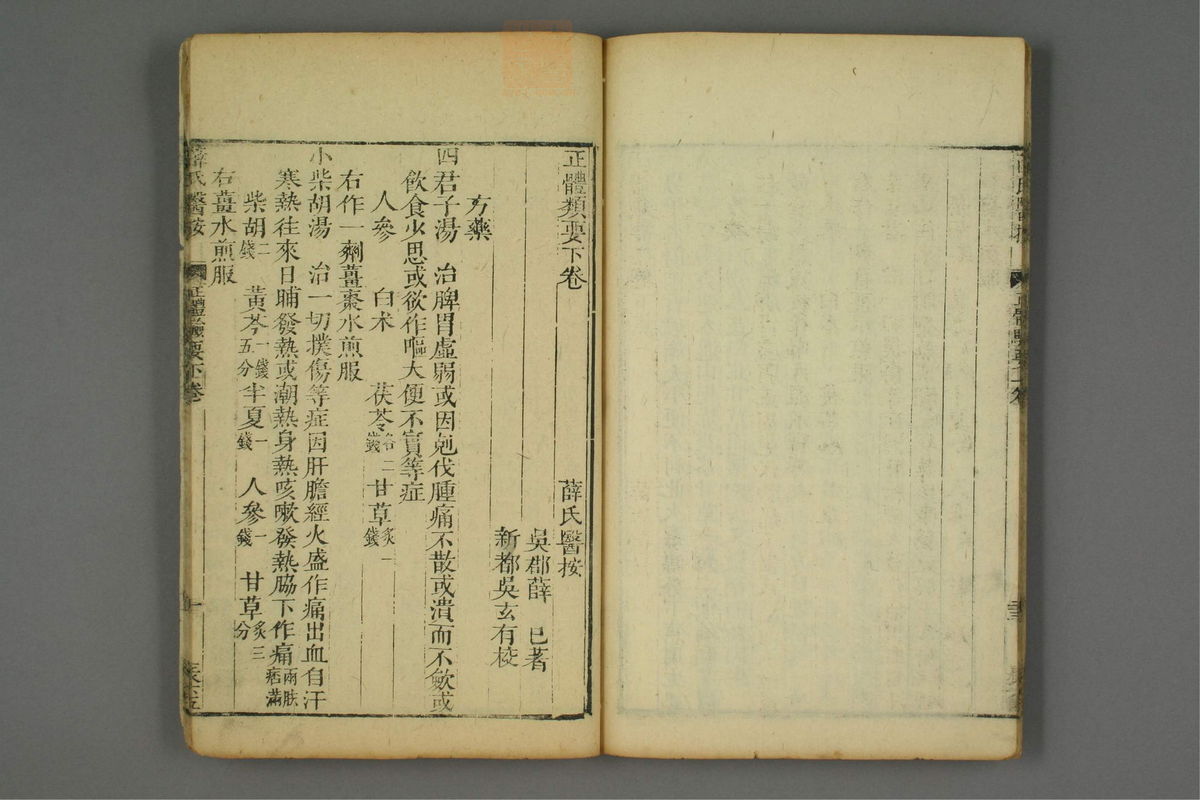 正體類要下卷　薛氏醫按
吳郡薛　己著
新都吳玄有校
方藥
四君子湯　治脾胃虛弱或因剋伐腫痛不散或潰而不斂或
飲食少思或欲作嘔大便不實等症
人參　白术　茯苓各二錢　甘草炙一錢
右作一劑薑棗水煎服
小柴胡湯　治一切撲傷等症因肝膽經火盛作痛出血自汗
寒熱往來日晡發熱或潮熱身熱咳嗽發熱脇下作痛兩肤痞滿
柴胡二錢　黃芩一錢五分　半夏一錢　人參一錢　甘草炙三分
右薑水煎服
薛氏醫按　正體類要下卷　一